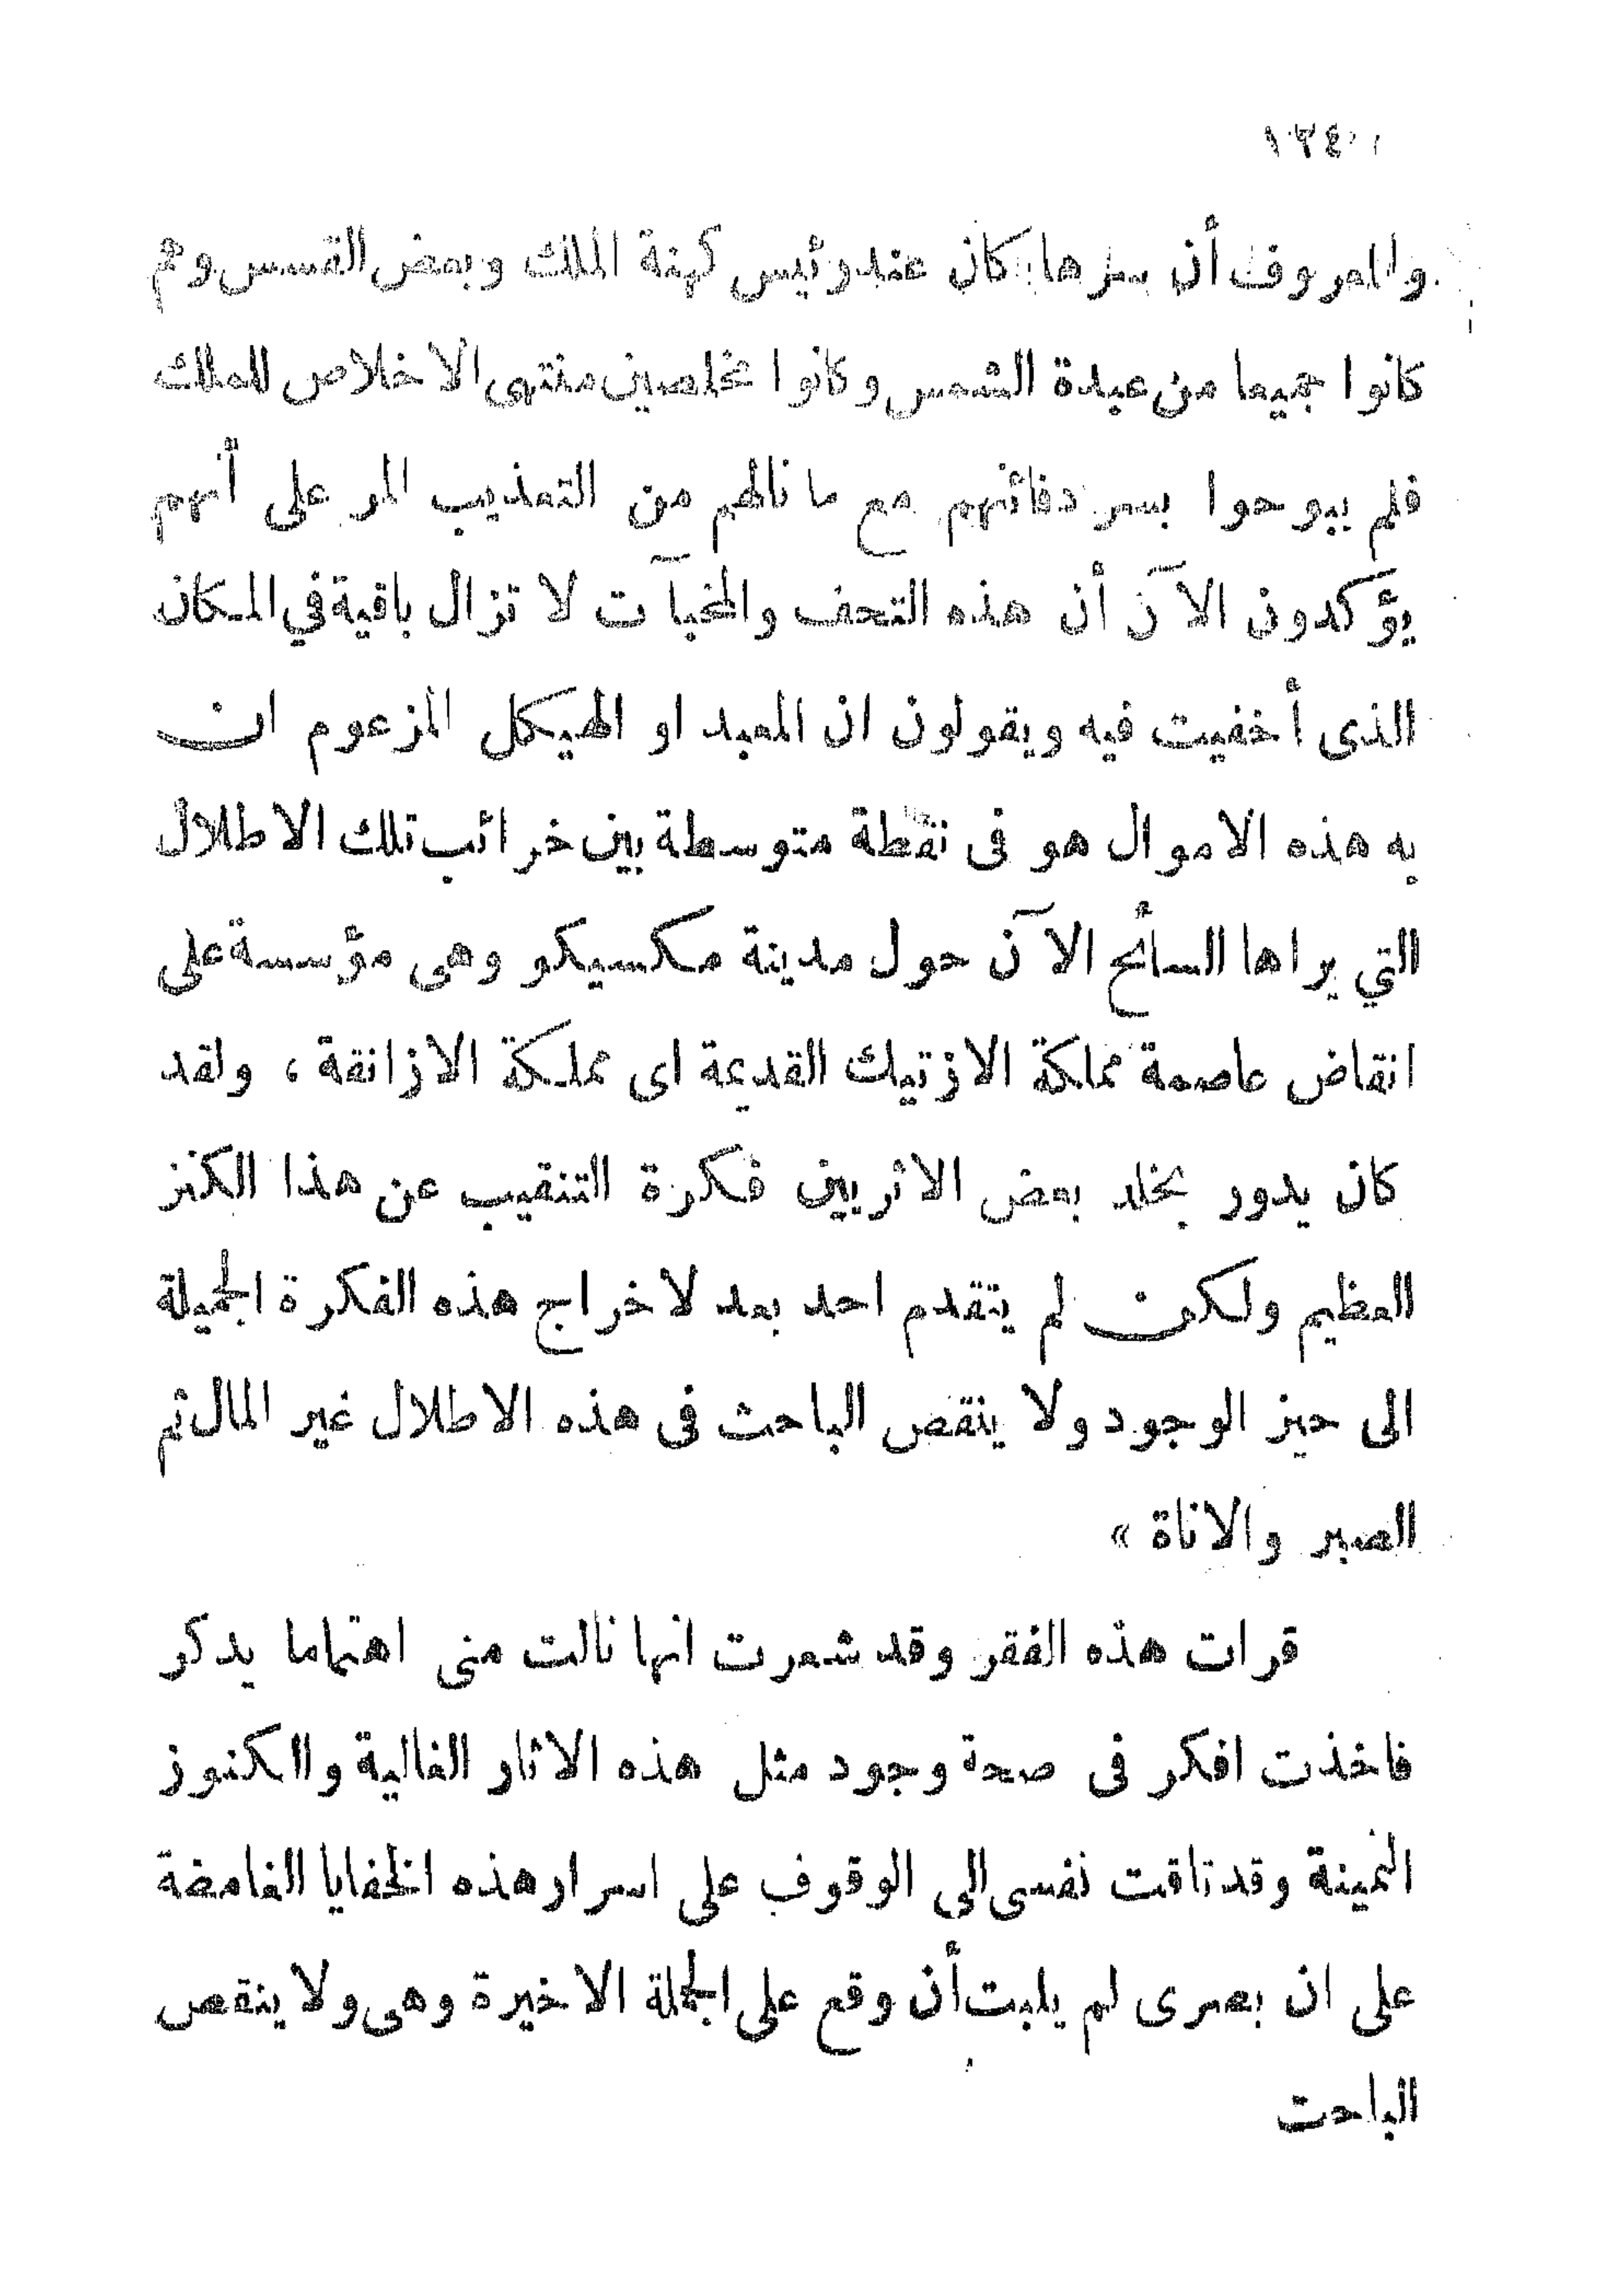 ١٣٤٠
والمعروف أن سرها كان عند رئيس كهنة الملك وبعض القسس وهم
كانوا جميعا من عبدة الشمس وكانوا مخلصين منتهى الاخلاص للملك
فلم يبوحوا بسر دفائنهم مع ما نالهم من التعذيب المر على أنهم
يؤكدون الآن أن هذه التحف والمخبآت لا تزال باقية في المكان
الذى أخفيت فيه ويقولون ان المعبد او الهيكل المزعوم ان
به هذه الاموال هو فى نقطة متوسطة بين خرائب تلك الاطلال
التي يراها السائح الآن حول مدينة مكسيكو وهى مؤسسة على
انقاض عاصمة مملكة الازتيك القديمة اى مملكة الازانقة ، ولقد
كان يدور بخلد بعض الاثريين فكرة التنقيب عن هذا الكنز
العظيم ولكن لم يتقدم احد بعد لاخراج هذه الفكرة الجميلة
الى حيز الوجود ولا ينقص الباحث فى هذه الاطلال غير المال ثم
الصبر والاناة »
قرات هذه الفقر وقد شعرت انها نالت منى اهتماما يدكر
فاخذت افكر فى صحة وجود مثل هذه الاثار الغالية والكنوز
الثمينة وقد تاقت نفسى الى الوقوف على اسرار هذه الخفايا الغامضة
على ان بصرى لم يلبت أن وقع على الجملة الاخيرة وهى ولا ينقص
الباحت